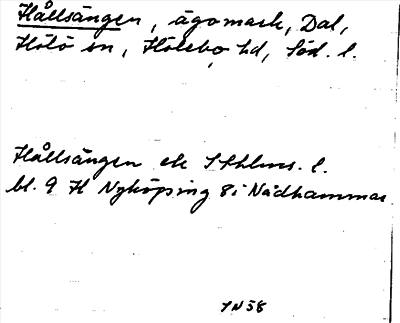 Hållsängen, ägomark, Dal,
Hölö sn, Hölebo hd, Söd. l.
Hållsängen ek Sthlms. l.
bl. 9 H Nyköping 8 i Nådhammar
IN 58